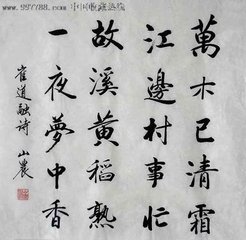 www.997788.com 中国收藏热线
萬木已清霜
江邊村事忙
故溪黃稻熟
一夜夢中香
崔道融诗 山農